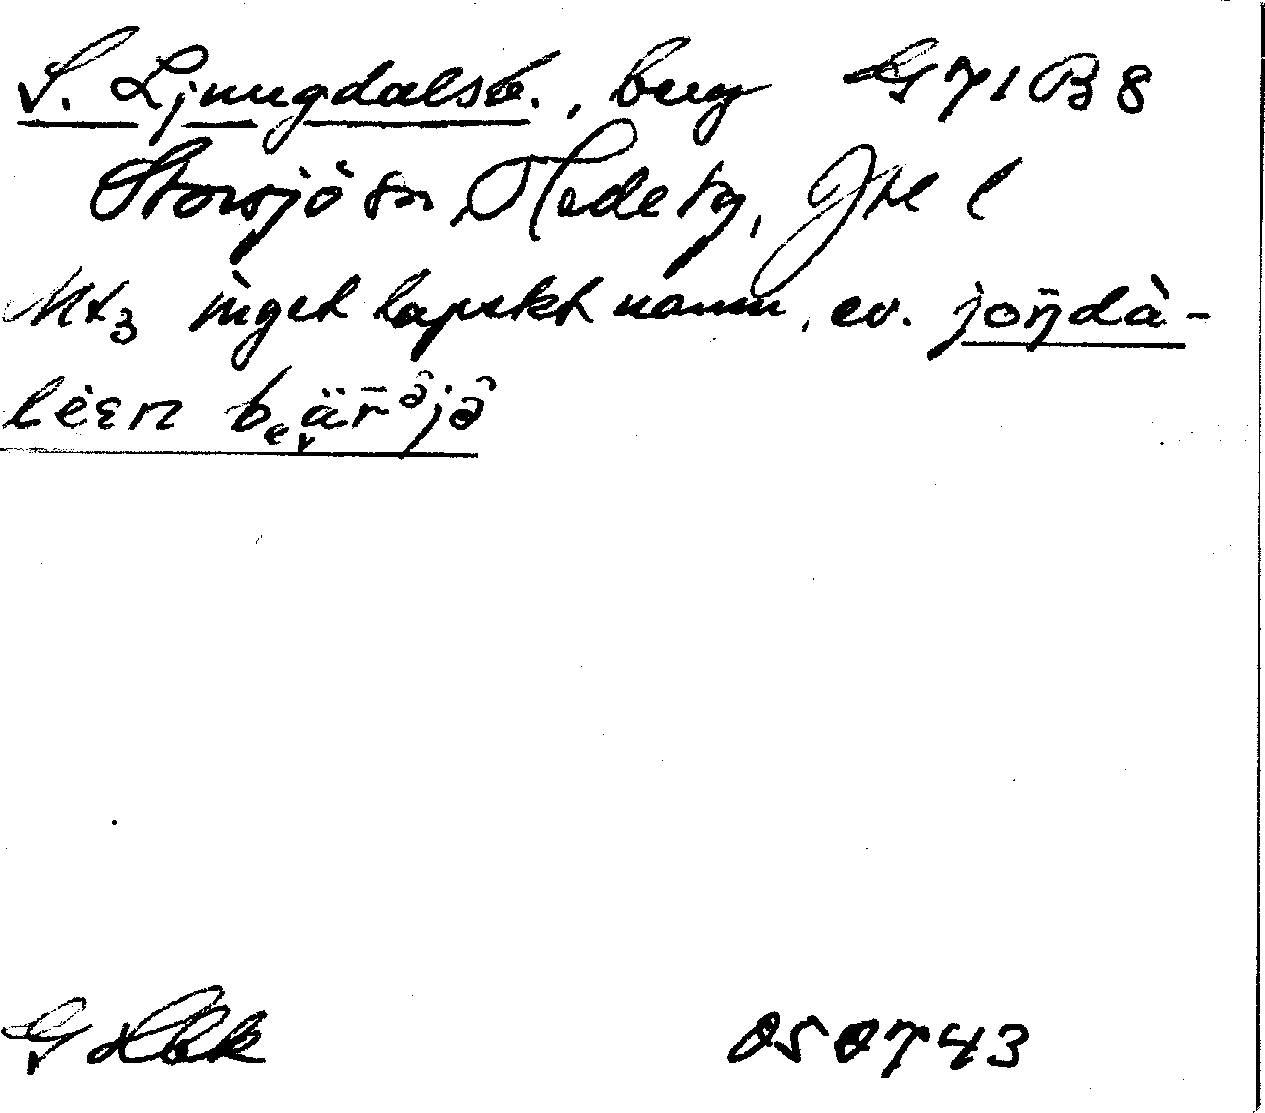 S. Ljungdalsb., berg G71B8
Storsjö sn, Hede tg, Jtl l
Mt3 inget lapskt namn, ev. joŋ̄dà-
lèεn be̬är̄ə̂jə̂
G Hbk 050743